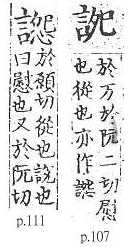 於万於阮二切慰
也從也亦作
於願切從也說也
曰慰也又於阮切
p.107
p.111